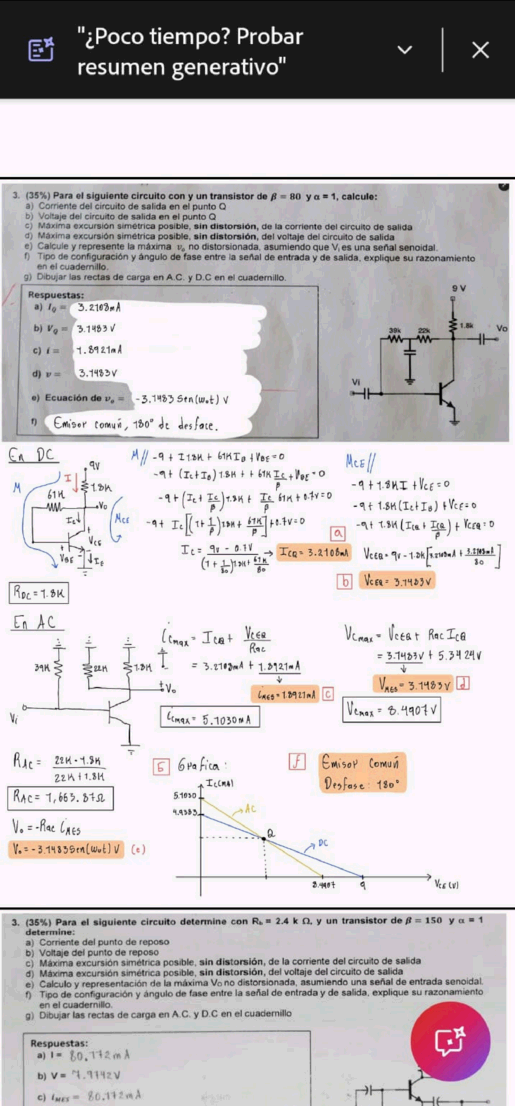 "¿Poco tiempo? Probar
resumen generativo"
3. (35%) Para el siguiente circuito con y un transistor de β = 80 y α = 1, calcule:
a) Corriente del circuito de salida en el punto Q
b) Voltaje del circuito de salida en el punto Q
c) Máxima excursión simétrica posible, sin distorsión, de la corriente del circuito de salida
d) Máxima excursión simétrica posible, sin distorsión, del voltaje del circuito de salida
e) Calcule y represente la máxima vₒ no distorsionada, asumiendo que Vᵢ es una señal senoidal.
f) Tipo de configuración y ángulo de fase entre la señal de entrada y de salida, explique su razonamiento
en el cuadernillo.
g) Dibujar las rectas de carga en A.C. y D.C en el cuadernillo.
Respuestas:
a) I_Q = 3.2108mA
b) V_Q = 3.1483 V
c) i = 1.8921mA
d) v = 3.1483V
e) Ecuación de vₒ = -3.1483 Sen(wot) V
f) Emisor común, 180° de desface.
9 V
39k
22k
1.8k
Vo
Vi
En DC
9V
M
I
1.8K
61K
Vo
Ic
MCE
VBE
IE
RDC = 1.8K
M// -9 + I1.8K + 61KIB + VBE = 0
-9 + (Ic + IB) 1.8K + 61K Ic/β + VBE = 0
-9 + (Ic + Ic/β) 1.8K + Ic/β 61K + 0.7V = 0
-9 + Ic[(1 + 1/β) 1.8K + 61K/β] + 0.7V = 0
Ic = 9V - 0.7V / (1 + 1/80) 1.8K + 61K/80 → ICQ = 3.2108mA
a
MCE//
-9 + 1.8KI + VCE = 0
-9 + 1.8K(Ic + IB) + VCE = 0
-9 + 1.8K(ICQ + ICQ/β) + VCEQ = 0
VCEQ = 9V - 1.8K[3.2108mA + 3.2108mA/80]
b VCEQ = 3.1483V
En AC
39K
22K
1.8K
Vo
Vi
iCmax = ICQ + VCEQ/Rac
= 3.2108mA + 1.8921mA
iMES = 1.8921mA c
iCmax = 5.1030mA
VCmax = VCEQ + Rac ICQ
= 3.1483V + 5.3424V
VMES = 3.1483V d
VCmax = 8.4907V
RAC = 22K · 1.8K / 22K + 1.8K
RAC = 1,663.87Ω
Vo = -Rac iMES
Vo = -3.1483Sen(wot) V (e)
G Grafica:
Ic(mA)
5.1030
4.9383
AC
Q
DC
8.4907
9
VCE (V)
f Emisor Común
Desfase: 180°
3. (35%) Para el siguiente circuito determine con RL = 2.4 k Ω, y un transistor de β = 150 y α = 1
determine:
a) Corriente del punto de reposo
b) Voltaje del punto de reposo
c) Máxima excursión simétrica posible, sin distorsión, de la corriente del circuito de salida
d) Máxima excursión simétrica posible, sin distorsión, del voltaje del circuito de salida
e) Calculo y representación de la máxima Vo no distorsionada, asumiendo una señal de entrada senoidal.
f) Tipo de configuración y ángulo de fase entre la señal de entrada y de salida, explique su razonamiento
en el cuadernillo.
g) Dibujar las rectas de carga en A.C. y D.C en el cuadernillo
Respuestas:
a) I = 80.172mA
b) V =
c) iMES = 80.172mA